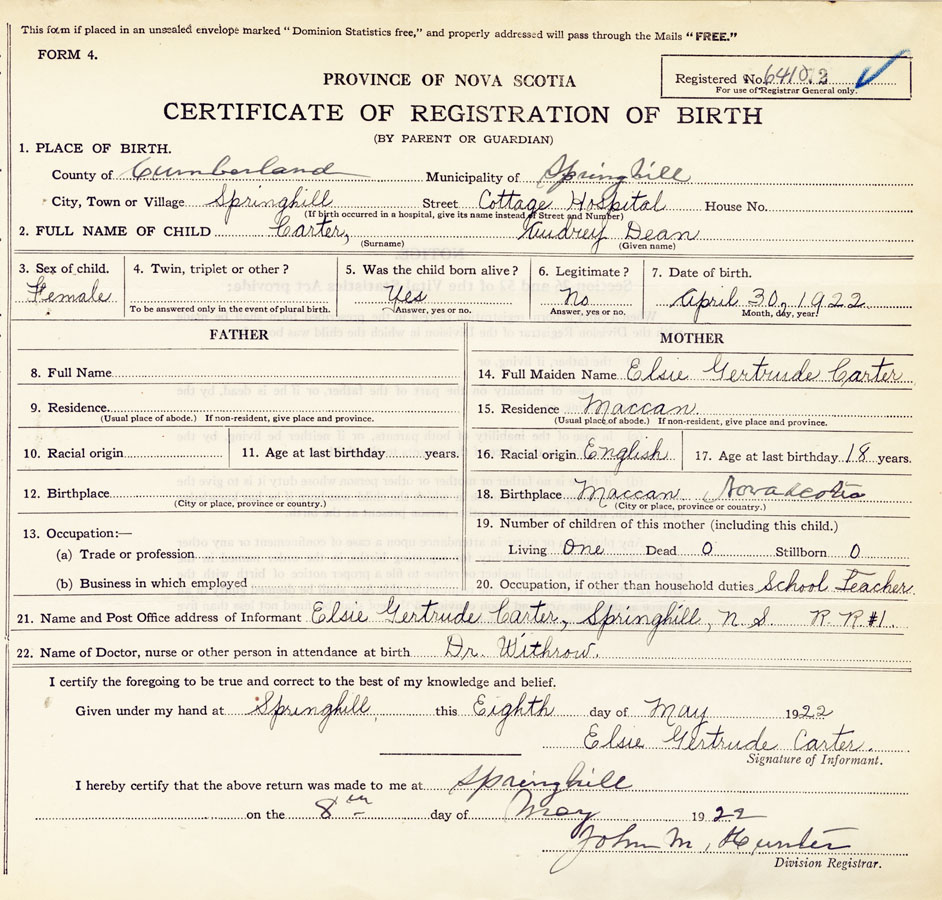 This form if placed in an unsealed envelope marked "Dominion Statistics free," and properly addressed will pass through the Mails "FREE."
FORM 4.
Registered No. 6410.2
For use of Registrar General only.
PROVINCE OF NOVA SCOTIA
CERTIFICATE OF REGISTRATION OF BIRTH
(BY PARENT OR GUARDIAN)
1. PLACE OF BIRTH.
County of Cumberland Municipality of Springhill
City, Town or Village Springhill Street Cottage Hospital House No.
(If birth occurred in a hospital, give its name instead of Street and Number)
2. FULL NAME OF CHILD Carter, Audrey Dean
(Surname) (Given name)
3. Sex of child. 4. Twin, triplet or other? 5. Was the child born alive? 6. Legitimate? 7. Date of birth.
Female Yes No April 30, 1922
To be answered only in the event of plural birth. Answer, yes or no. Answer, yes or no. Month, day, year.
FATHER MOTHER
8. Full Name 14. Full Maiden Name Elsie Gertrude Carter
9. Residence 15. Residence Maccan
(Usual place of abode.) If non-resident, give place and province. (Usual place of abode.) If non-resident, give place and province.
10. Racial origin 11. Age at last birthday years. 16. Racial origin English 17. Age at last birthday 18 years.
12. Birthplace 18. Birthplace Maccan Nova Scotia
(City or place, province or country.) (City or place, province or country.)
13. Occupation:— 19. Number of children of this mother (including this child.)
(a) Trade or profession Living One Dead 0 Stillborn 0
(b) Business in which employed 20. Occupation, if other than household duties School Teacher
21. Name and Post Office address of Informant Elsie Gertrude Carter, Springhill, N. S. R. R #1.
22. Name of Doctor, nurse or other person in attendance at birth Dr. Withrow.
I certify the foregoing to be true and correct to the best of my knowledge and belief.
Given under my hand at Springhill, this Eighth day of May 1922
Elsie Gertrude Carter.
Signature of Informant.
I hereby certify that the above return was made to me at Springhill
on the 8th day of May 1922
John M, Hunter
Division Registrar.